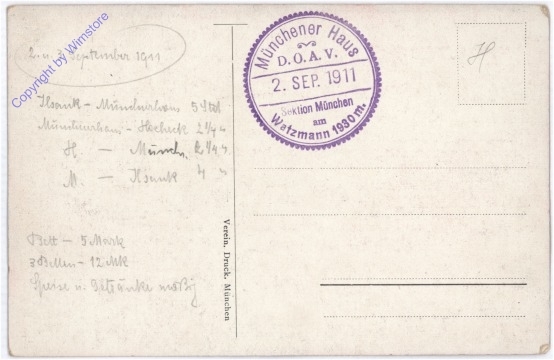 2. u. 3. September 1911
Ilsank – Münchnerhaus 5 Std
Münchnerhaus – Hocheck 2 1/4 "
H. – Münchn. 2 1/4 "
M. – Ilsank 4 "
Bett – 5 Mark
3 Betten – 12 Mk
Speise u. Getränke mäßig
Copyright by Wimstore
Verein. Druck. München
Münchener Haus
D.O.A.V.
2. SEP. 1911
Sektion München
am
Watzmann 1930 m.
H